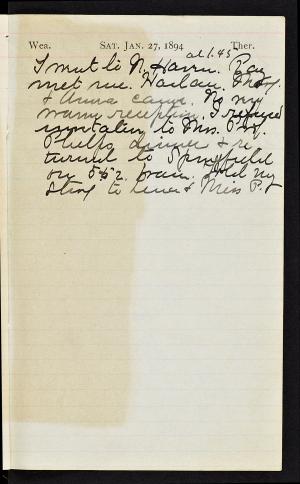 Wea. SAT. JAN. 27, 1894 Ther.
at 1.45
I went to N. Haven. Ray
met me. Harlan, 
& Anna came. No very
warm reception. I refused
invitation to Mrs. Prof.
Phelps dinner & re
turned to Springfield
on 5.52 train. Told my
story to Lena & Miss P.